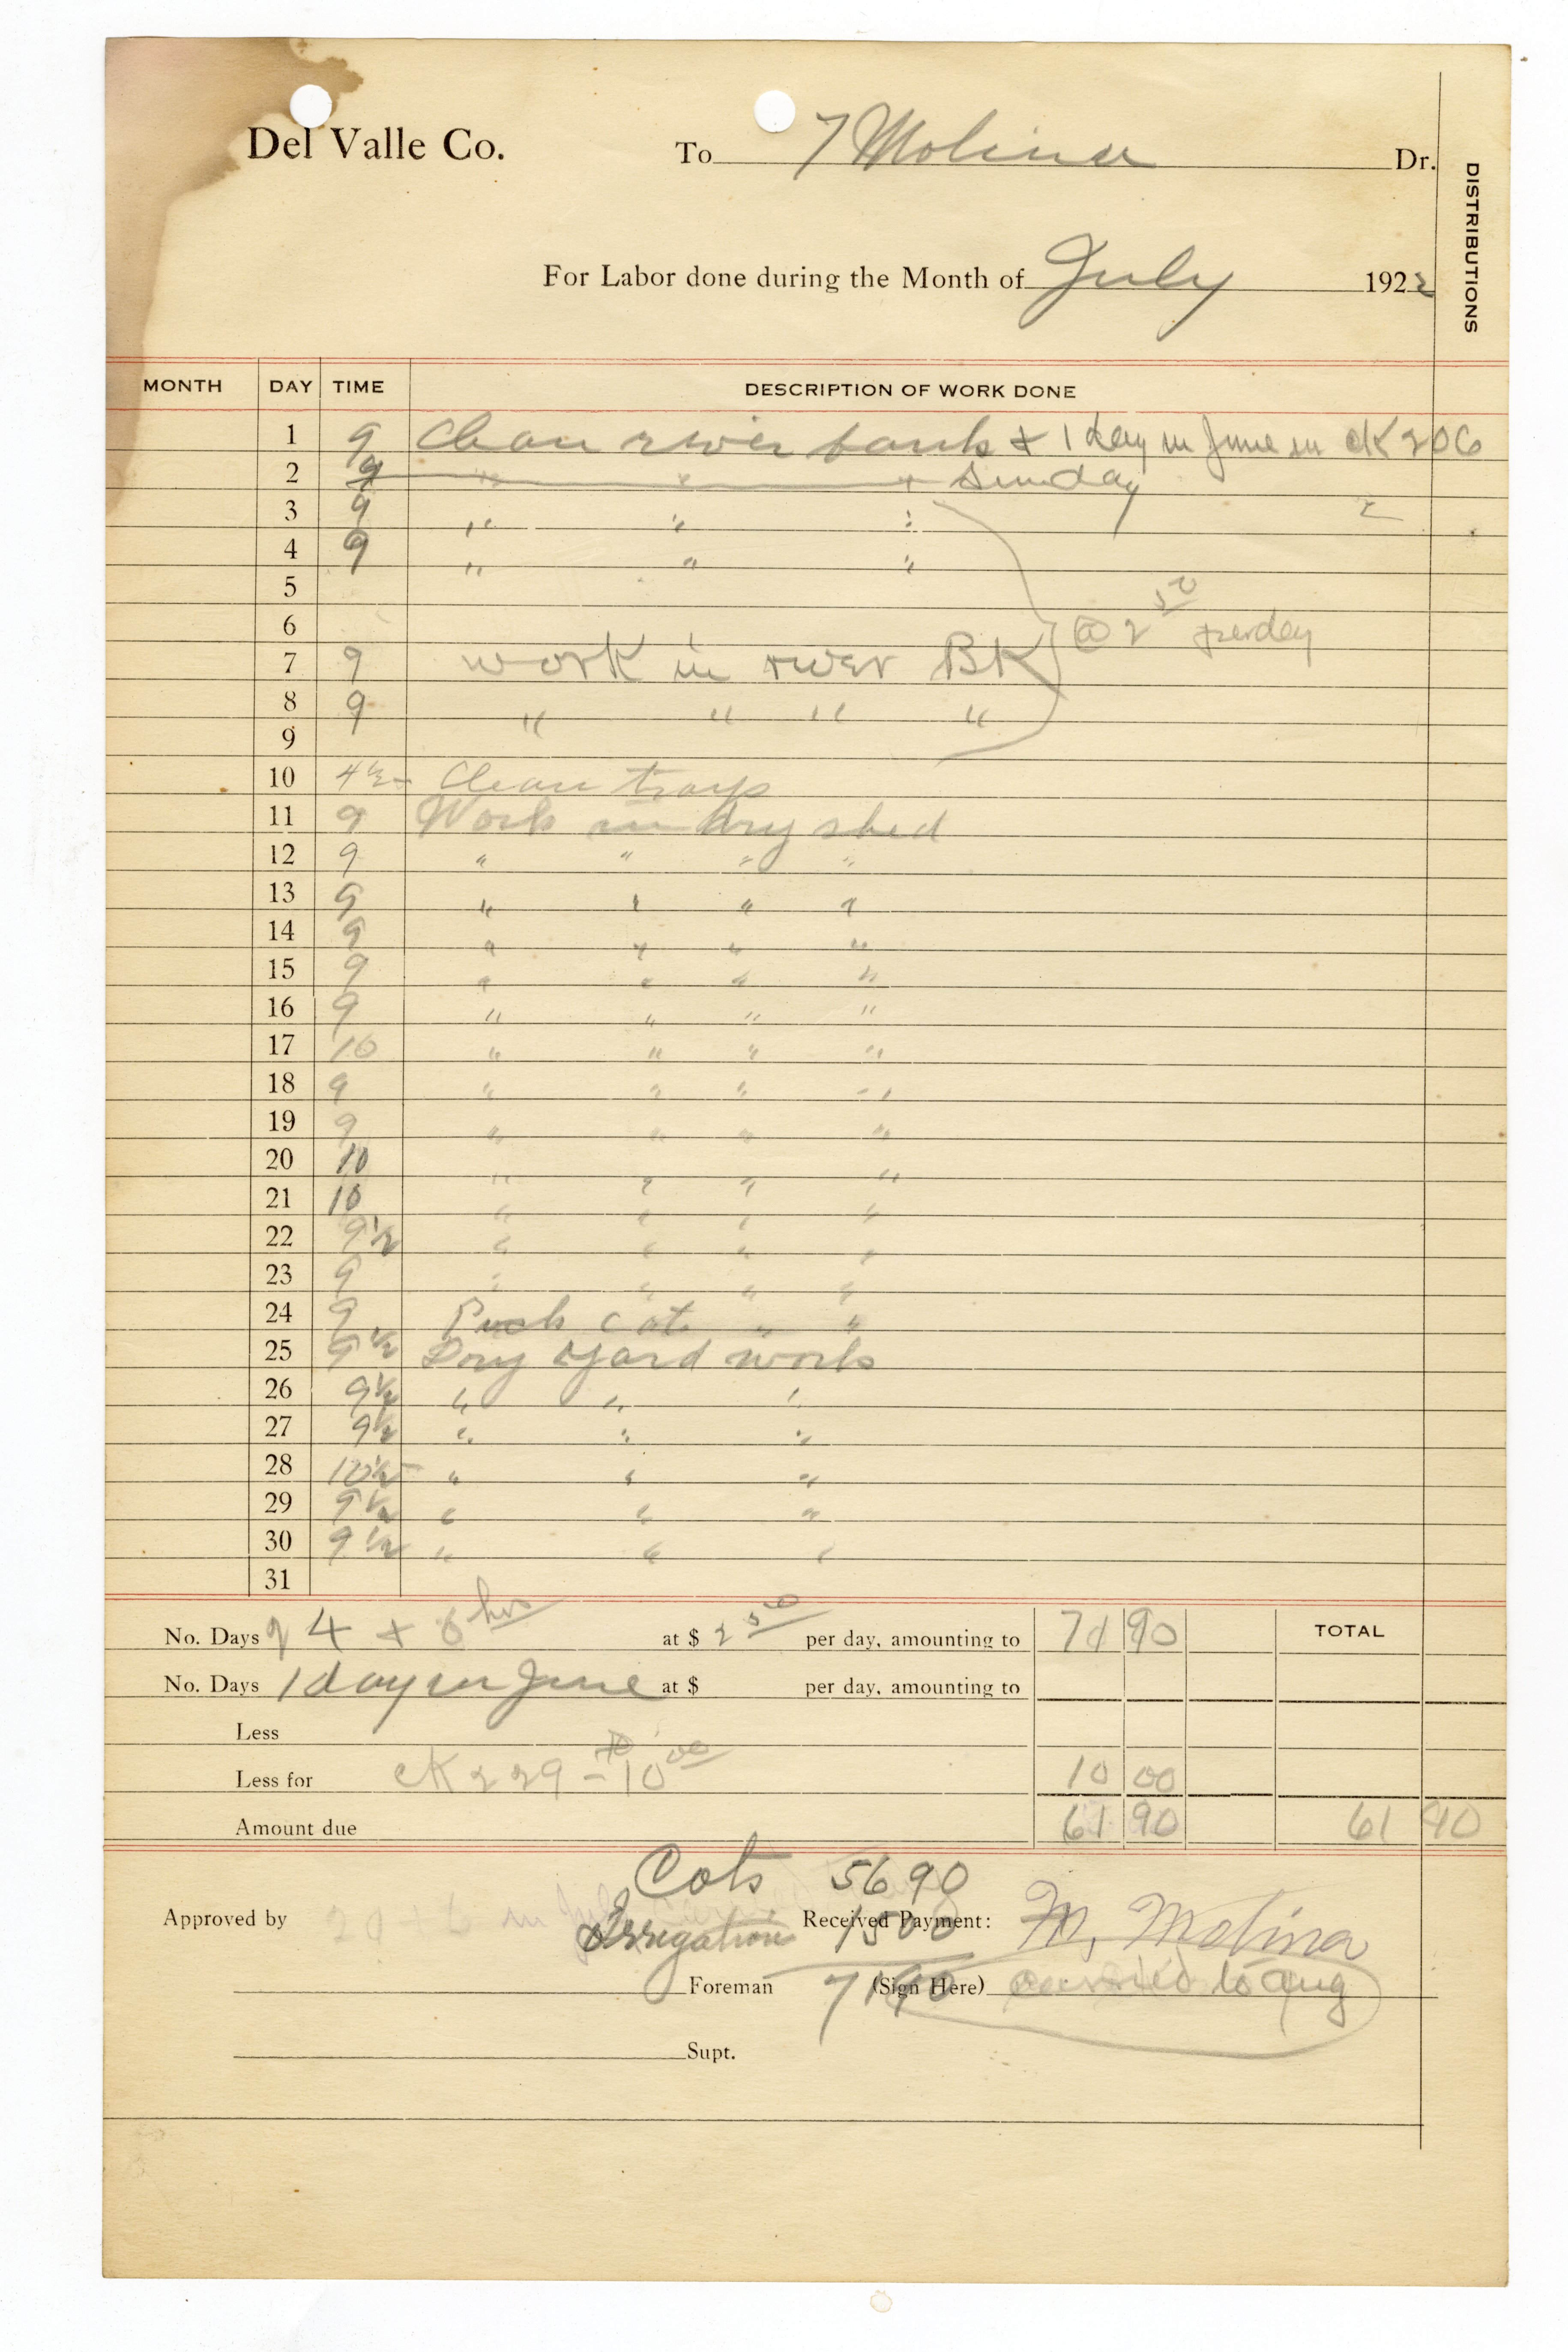 Del Valle Co. To 7 Molina Dr.
DISTRIBUTIONS
For Labor done during the Month of July 1922
MONTH DAY TIME DESCRIPTION OF WORK DONE
1 9 Clean river bank + 1 day in June in cK 206
2 9 " " " Sunday
3 9 " " "
4 9 " " "
5
6 @ 2 50 per day
7 9 work in river BK
8 9 " " " "
9
10 4 1/2 Clean trays
11 9 Work in dry shed
12 9 " " " "
13 9 " " " "
14 9 " " " "
15 9 " " " "
16 9 " " " "
17 10 " " " "
18 9 " " " "
19 9 " " " "
20 10 " " " "
21 10 " " " "
22 9 1/2 " " " "
23 9 " " " "
24 9 cots " "
25 9 1/2 Dry Yard work
26 9 1/2 " " "
27 9 1/2 " " "
28 10 1/2 " " "
29 9 1/2 " " "
30 9 1/2 " " "
31
No. Days 4 + 6 hrs at $ 2 50 per day, amounting to 71 90 TOTAL
No. Days 1 day in June at $ per day, amounting to
Less
Less for cK 229 - 10 00 10 00
Amount due 61 90 61 90
Cots 56 90
Approved by Irrigation 15 00 Received Payment: M. Molina
Foreman 71 90 (Sign Here) carried to Aug
Supt.